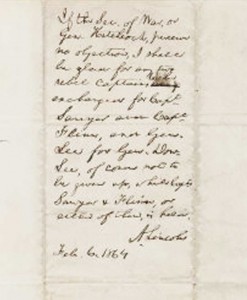 If the Sec. of War, or
Gen. Hitchcock, perceive
no objection, I shall
be glad for any
rebel Captains
exchanged for Capt.
Sawyer and Capt.
Flinn, and Gen.
Lee for Gen. Dow.
Lee, of course not to
be given up, while Capts
Sawyer & Flinn, or
either of them, is held.
A. Lincoln
Feb. 6. 1864